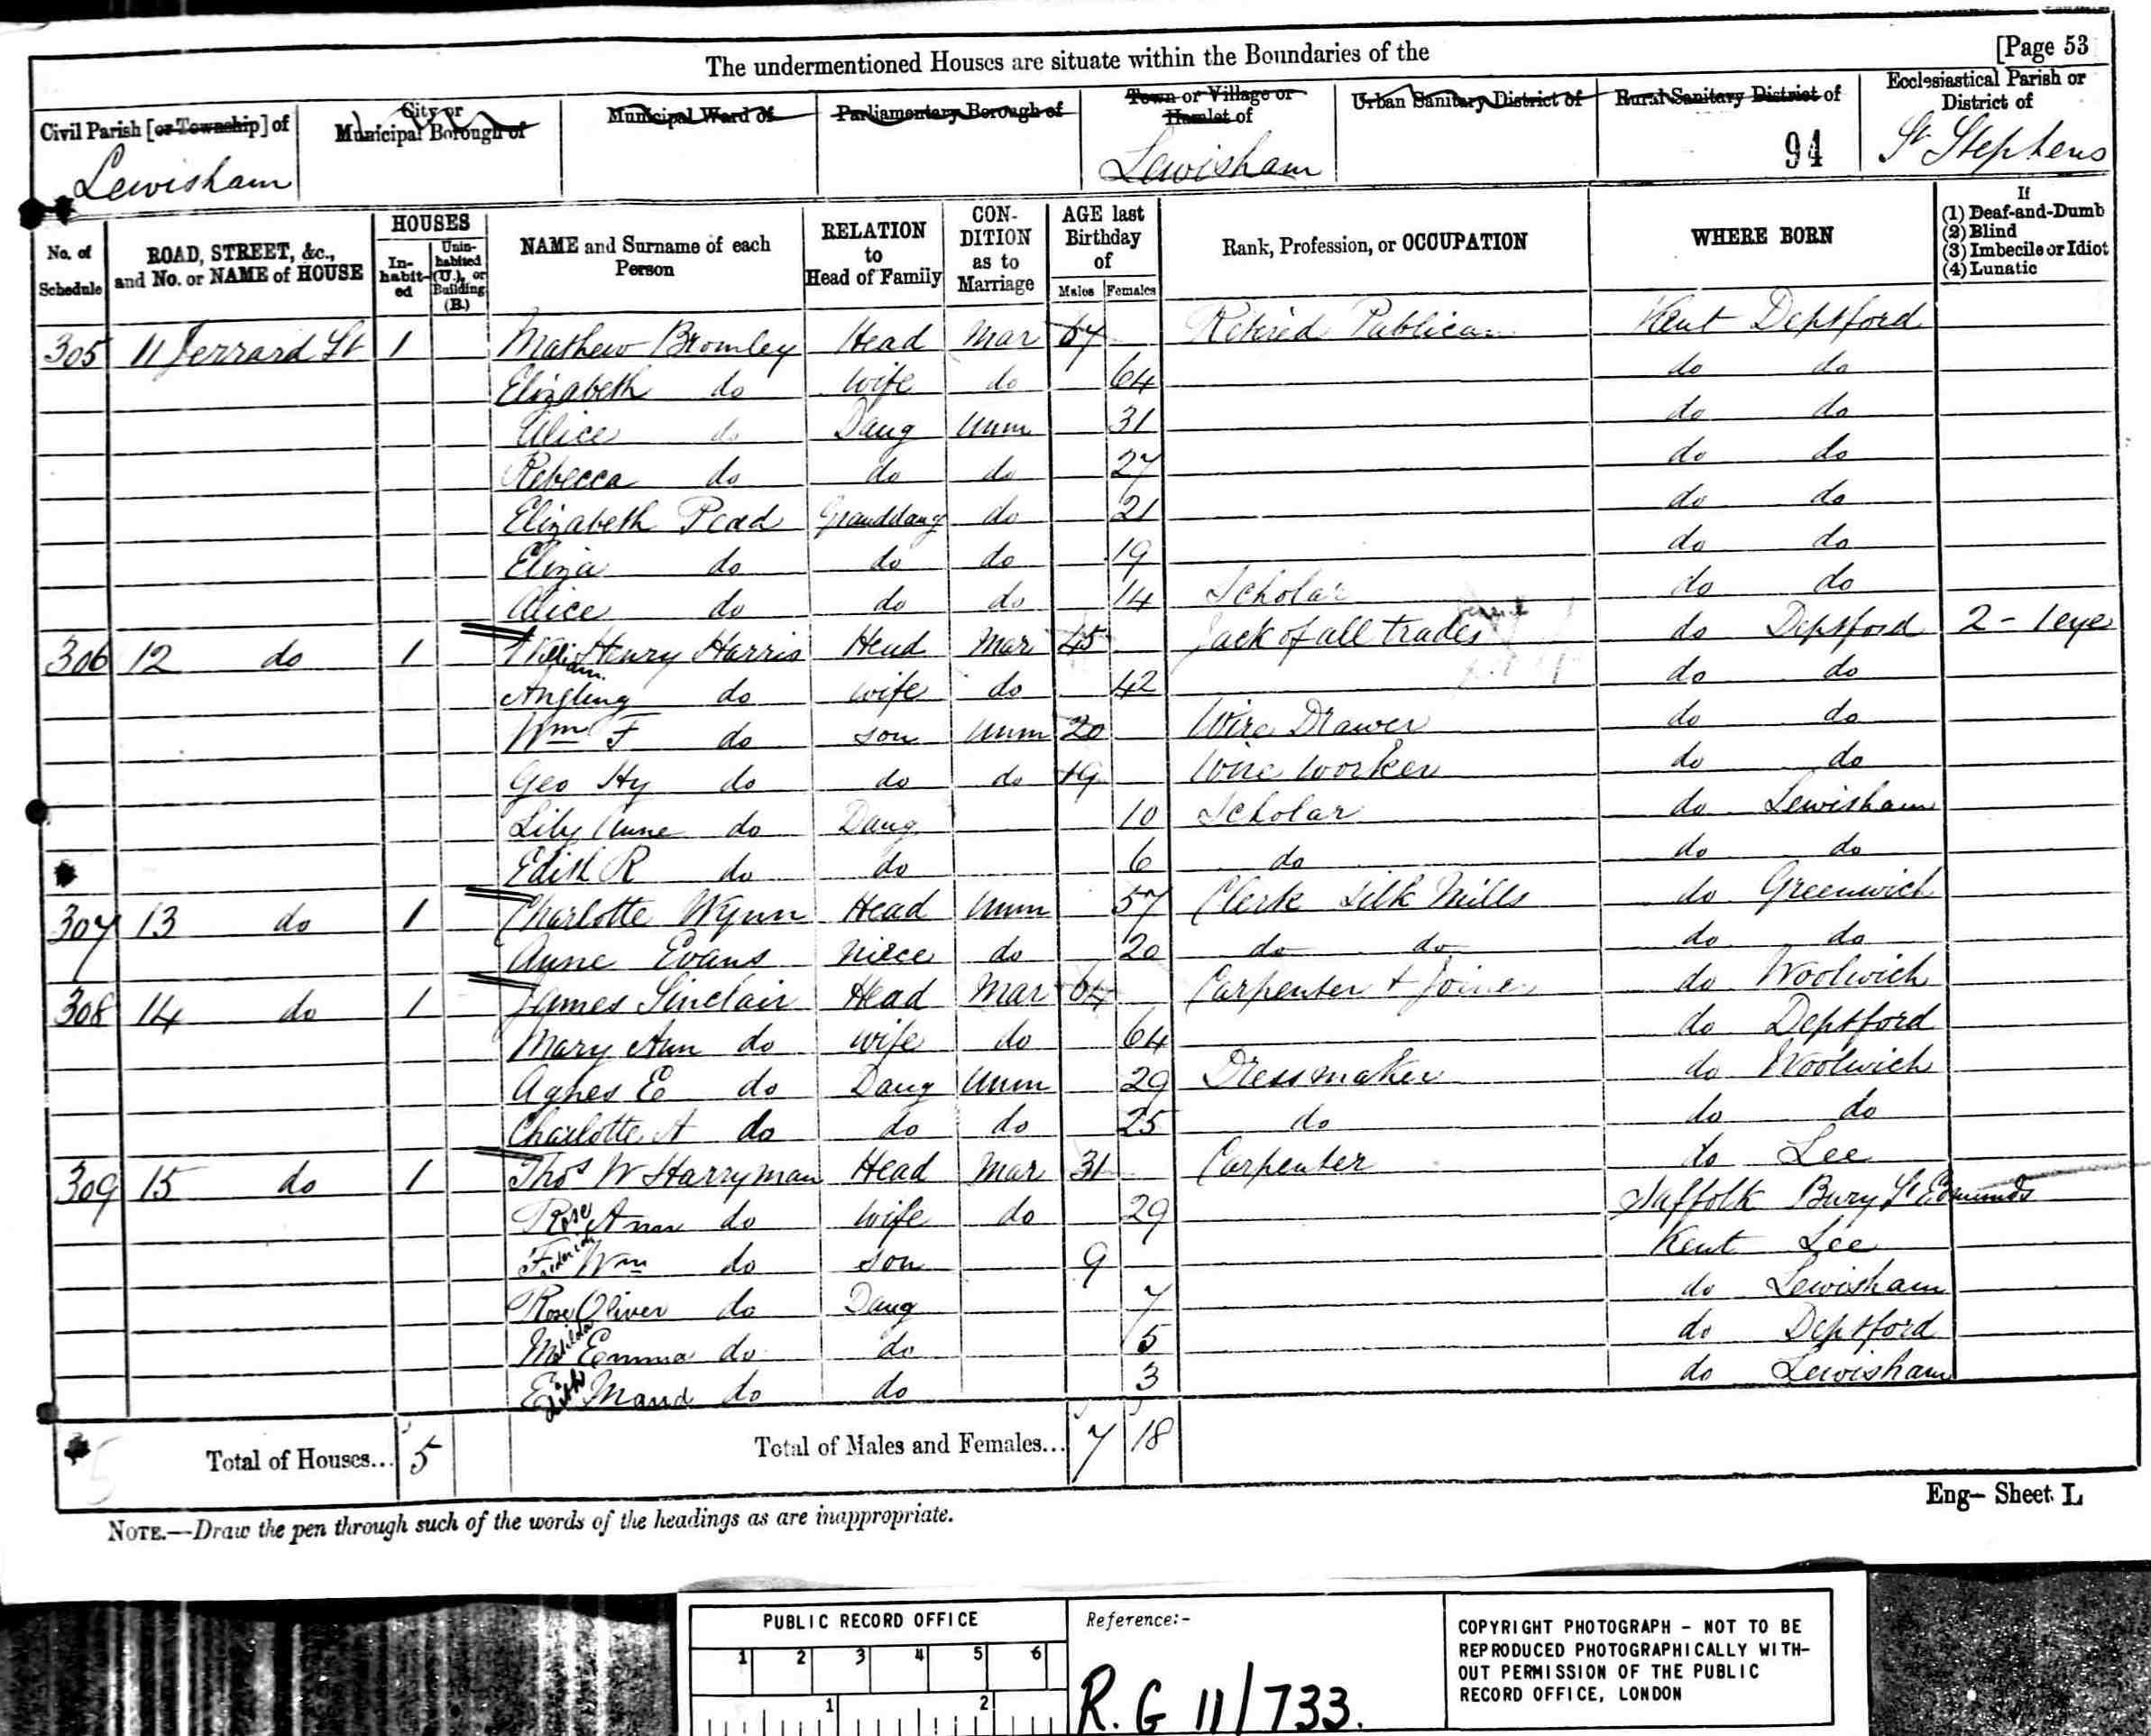 The undermentioned Houses are situate within the Boundaries of the
[Page 53
Civil Parish [or Township] of
City or Municipal Borough of
Municipal Ward of
Parliamentary Borough of
Town or Village or Hamlet of
Urban Sanitary District of
Rural Sanitary District of
Ecclesiastical Parish or District of
Lewisham
Lewisham
94
St Stephens
No. of Schedule
ROAD, STREET, &c., and No. or NAME of HOUSE
HOUSES
Inhabited
Uninhabited (U.), or Building (B.)
NAME and Surname of each Person
RELATION to Head of Family
CONDITION as to Marriage
AGE last Birthday of
Males
Females
Rank, Profession, or OCCUPATION
WHERE BORN
If
(1) Deaf-and-Dumb
(2) Blind
(3) Imbecile or Idiot
(4) Lunatic
305 11 Jerrard St 1 Mathew Bromley Head Mar 67 Retired Publican Kent Deptford
Elizabeth do wife do 64 do do
Alice do Daug Unm 31 do do
Rebecca do do do 27 do do
Elizabeth Pead Granddaug do 21 do do
Eliza do do do 19 do do
Alice do do do 14 Scholar do do
306 12 do 1 William Henry Harris Head Mar 45 Jack of all trades do Deptford 2 - 1 eye
do wife do 42 do do
Wm F do son Unm 20 Wire Drawer do do
Geo Hy do do do 19 Wire worker do do
Lily Anne do Daug 10 Scholar do Lewisham
Edith R do do 6 do do do
307 13 do 1 Charlotte Wynn Head Unm 57 Clerk Silk Mills do Greenwich
Anne Evans niece do 20 do do do do
308 14 do 1 James Sinclair Head Mar 64 Carpenter + Joiner do Woolwich
Mary Ann do wife do 64 do Deptford
Agnes E do Daug Unm 29 Dressmaker do Woolwich
Charlotte A do do do 25 do do do
309 15 do 1 Thos W Harryman Head Mar 31 Carpenter do Lee
Rose Ann do wife do 29 Suffolk Bury St Edmunds
Wm do son 9 Kent Lee
Rose Oliver do Daug 7 do Lewisham
Matilda Emma do do 5 do Deptford
Edith Maud do do 3 do Lewisham
Total of Houses... 5
Total of Males and Females... 7 18
Eng- Sheet L
NOTE.—Draw the pen through such of the words of the headings as are inappropriate.
PUBLIC RECORD OFFICE
1 2 3 4 5 6
1 2
Reference:-
R.G 11/733.
COPYRIGHT PHOTOGRAPH - NOT TO BE
REPRODUCED PHOTOGRAPHICALLY WITH-
OUT PERMISSION OF THE PUBLIC
RECORD OFFICE, LONDON